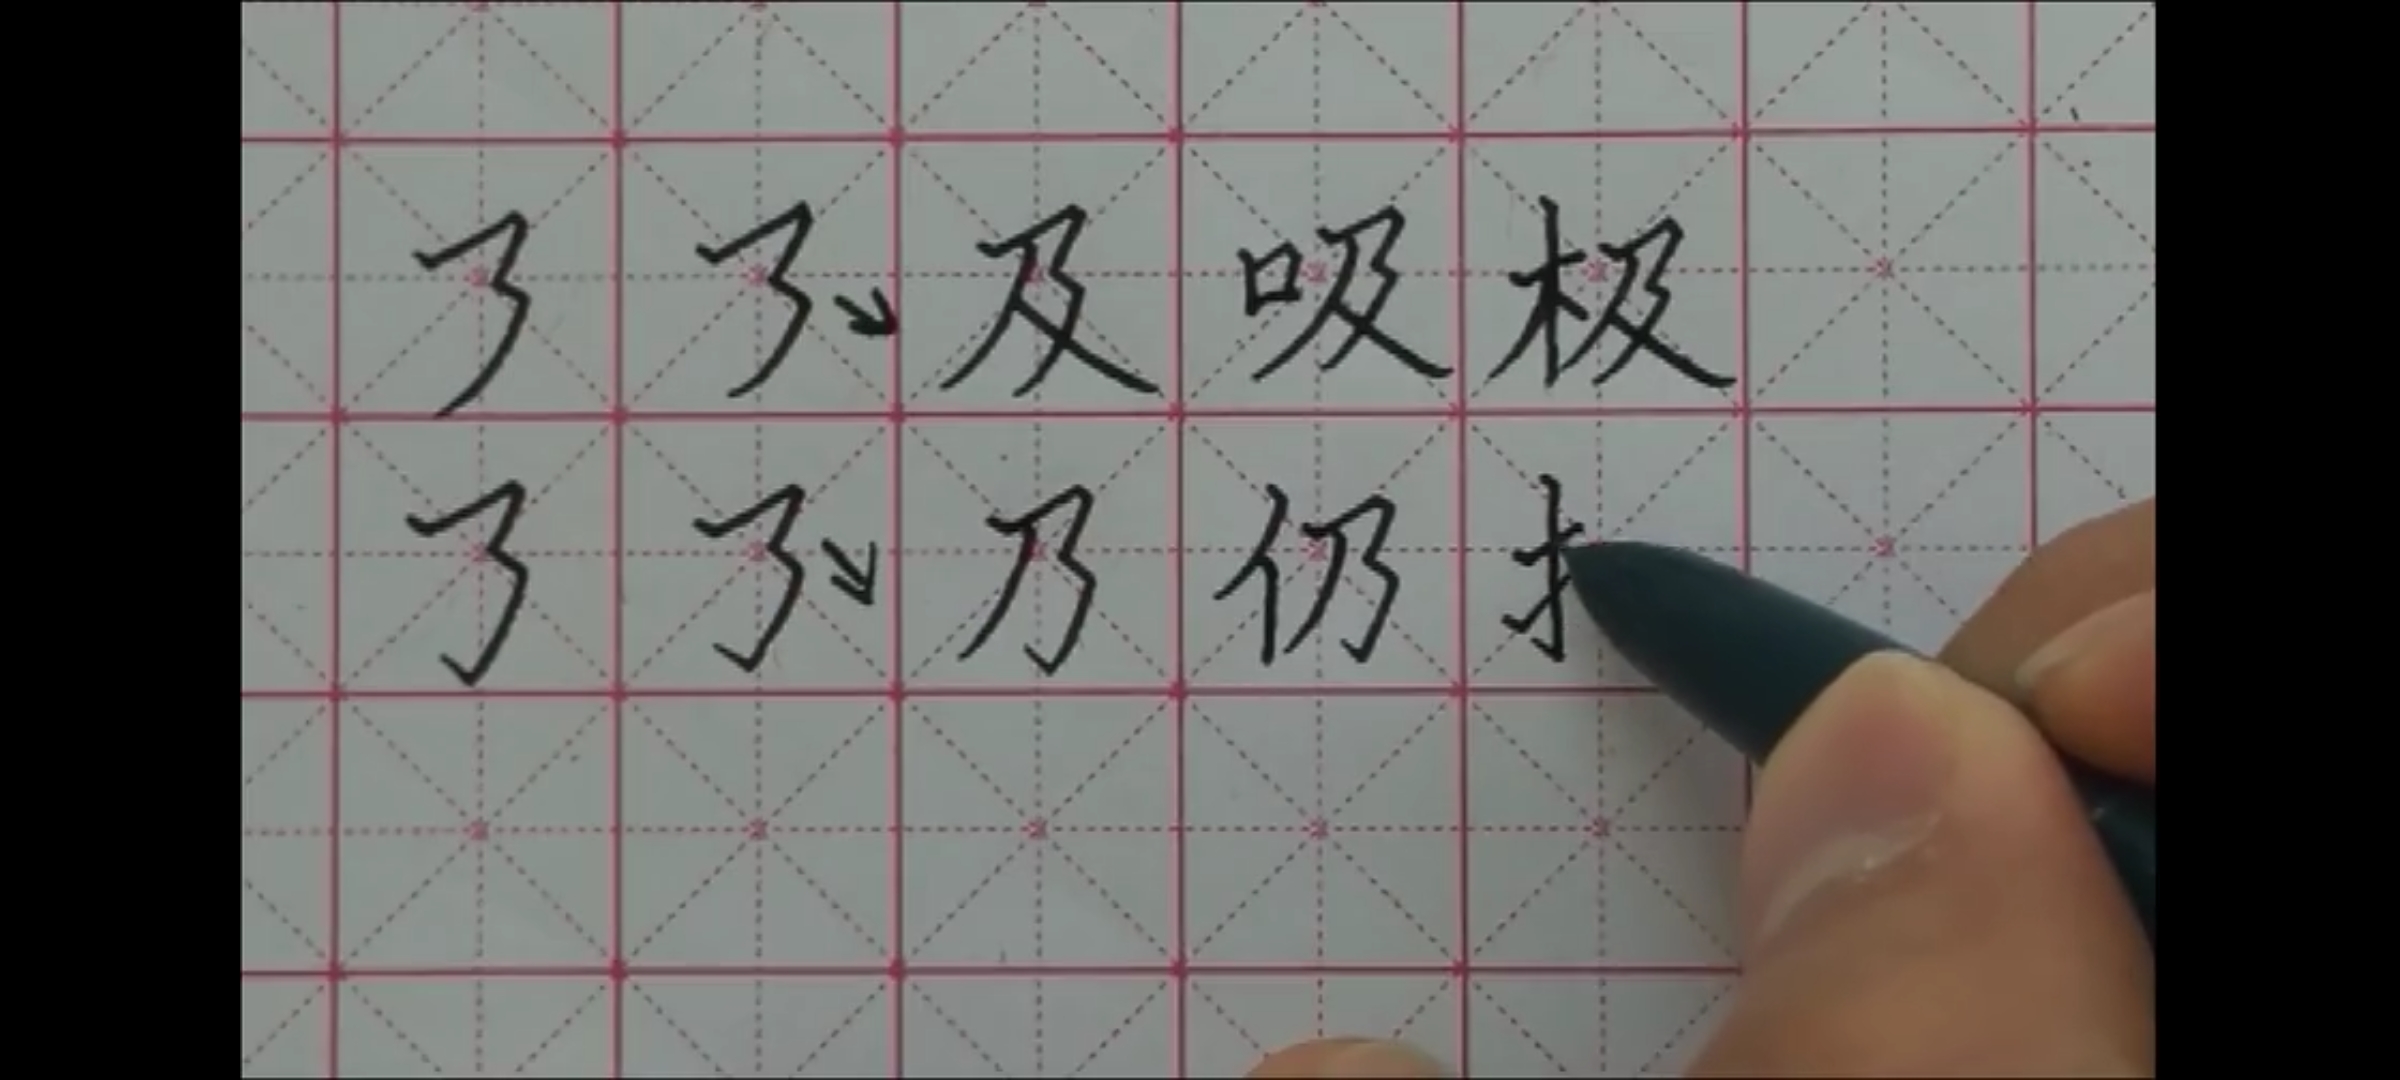 ㇋ ㇋ 及 吸 极
㇌ ㇌ 乃 仍 扌